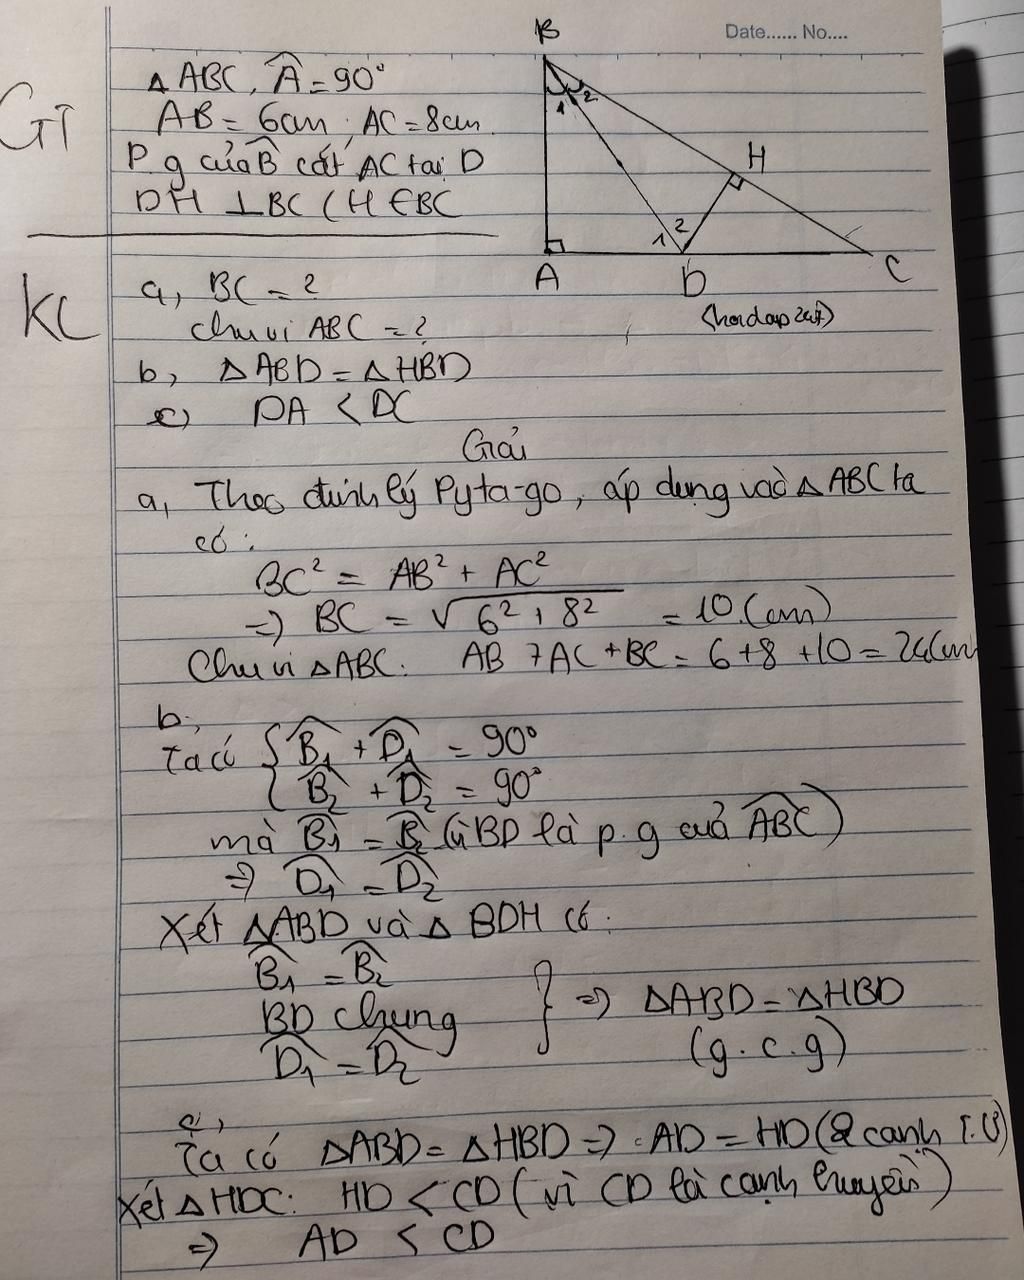 Date...... No....
GT
△ ABC, Â = 90°
AB = 6cm; AC = 8cm
P.g của B̂ cắt AC tại D
DH ⊥ BC (H ∈ BC
B
1 2
H
1 2
A D C
(hoidap247)
KL
a, BC = ?
chu vi ABC = ?
b, △ ABD = △ HBD
c) DA < DC
Giải
a, Theo định lý Pyta-go, áp dụng vào △ ABC ta
có:
BC² = AB² + AC²
=> BC = √(6² + 8²) = 10 (cm)
Chu vi △ABC: AB + AC + BC = 6+8+10 = 24(cm
b,
Ta có { B̂₁ + D̂₁ = 90°
B̂₂ + D̂₂ = 90°
mà B̂₁ = B̂₂ (vì BD là p.g của ABC)
=> D̂₁ = D̂₂
Xét △ABD và △ BDH có:
B̂₁ = B̂₂
BD chung } => △ABD = △HBD
D̂₁ = D̂₂ (g.c.g)
c,
Ta có △ABD = △HBD => AD = HD (2 cạnh T.Ư)
Xét △HDC: HD < CD (vì CD là cạnh huyền)
=> AD < CD